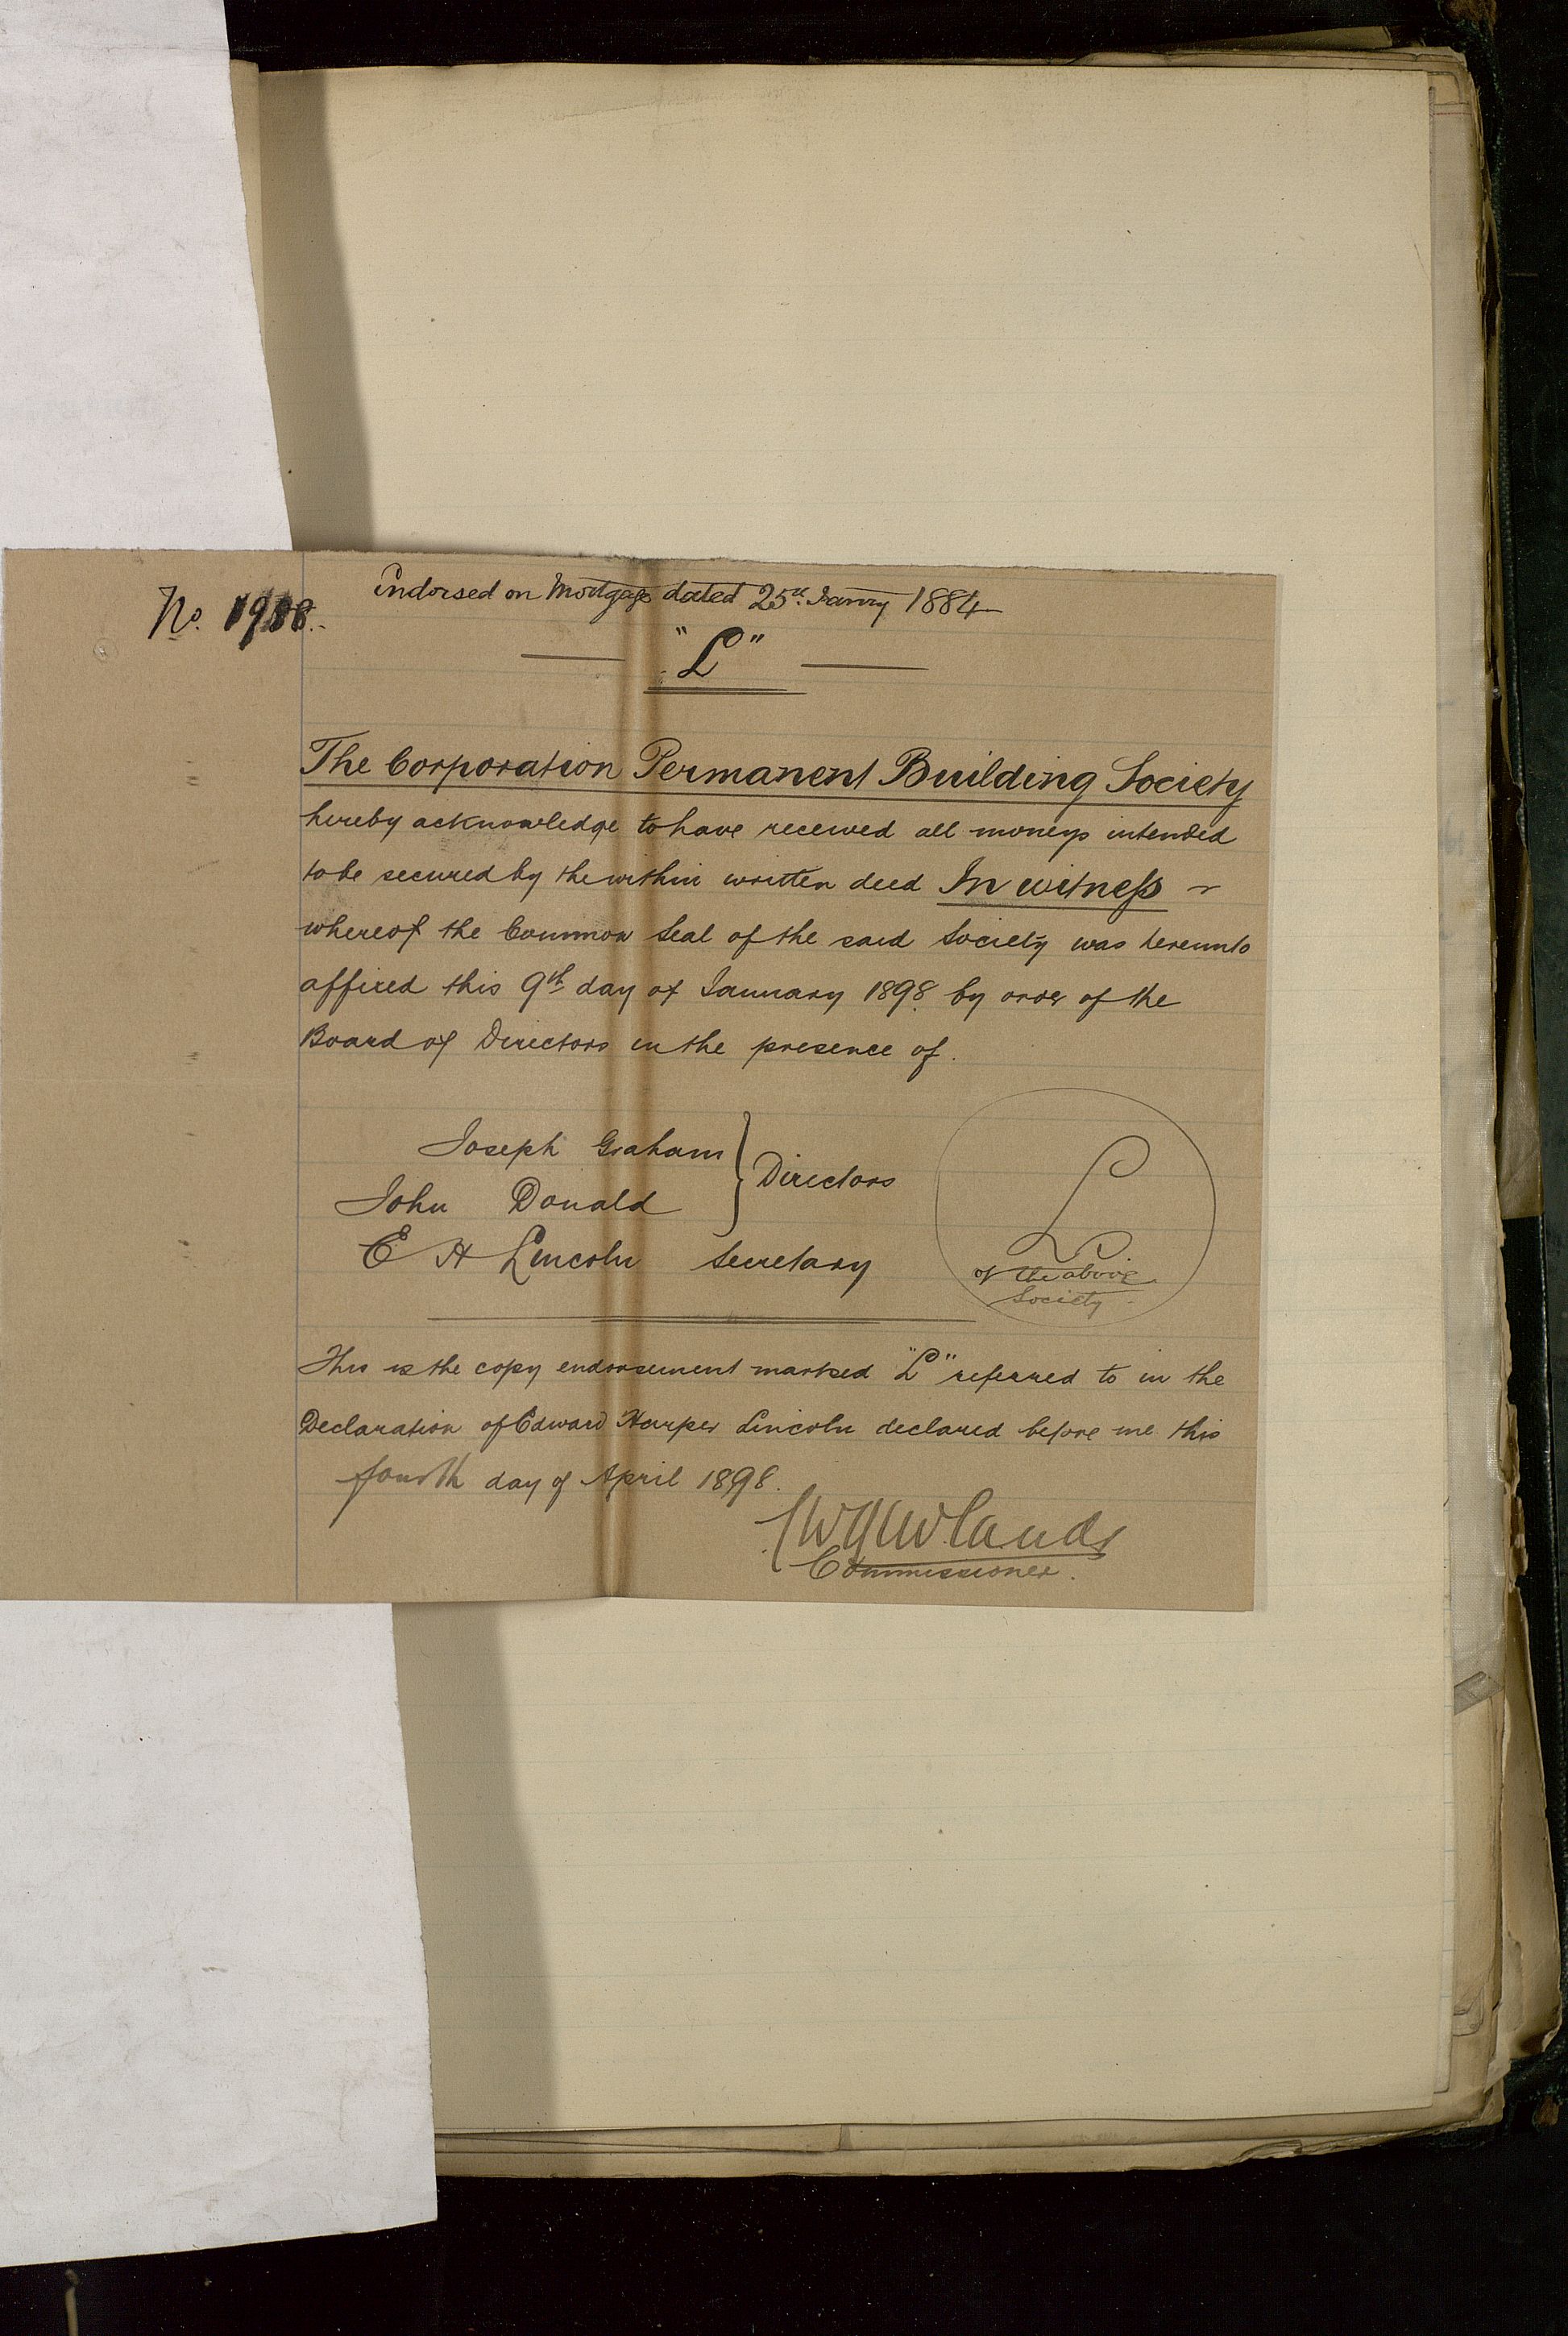 No. 1988.
Endorsed on Mortgage dated 25th Janry 1884
"L"
The Corporation Permanent Building Society
hereby acknowledge to have received all moneys intended
to be secured by the within written deed In witness
whereof the Common Seal of the said Society was hereunto
affixed this 9th day of January 1898 by order of the
Board of Directors in the presence of.
Joseph Graham
Directors
John Donald
E H Lincoln Secretary
L
of the above
Society
This is the copy endorsement marked "L" referred to in the
Declaration of Edward Harper Lincoln declared before me this
fourth day of April 1898.
Commissioner.